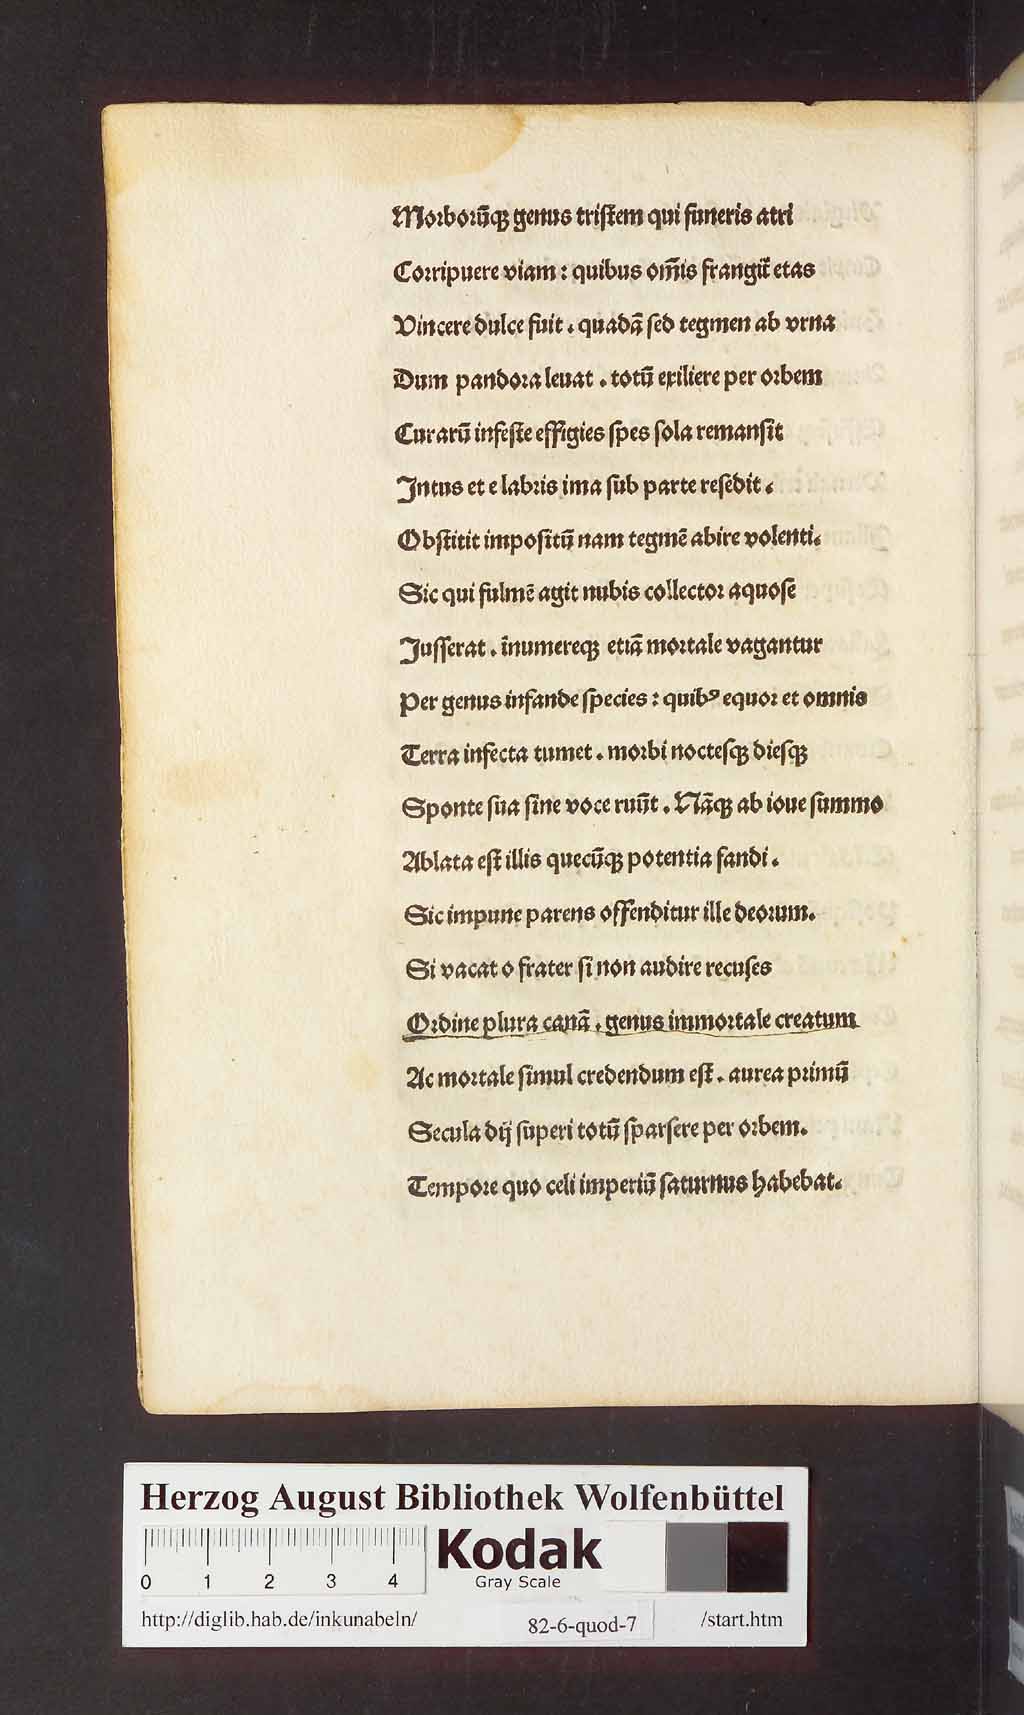 Morborūqꝫ genus tristem qui funeris atri
Corripuere viam : quibus om̄is frangit᷑ etas
Vincere dulce fuit . quadā sed tegmen ab vrna
Dum pandora leuat . totū exiliere per orbem
Curarū infeste effigies spes sola remansit
Intus et e labris ima sub parte resedit .
Obstitit impositū nam tegmē abire volenti.
Sic qui fulmē agit nubis collector aquose
Iusserat . īnumereqꝫ etiā mortale vagantur
Per genus infande species : quibꝰ equor et omnis
Terra infecta tumet . morbi noctesqꝫ diesqꝫ
Sponte sua sine voce ruūt . Nāqꝫ ab ioue summo
Ablata est illis quecūqꝫ potentia fandi .
Sic impune parens offenditur ille deorum.
Si vacat o frater si non audire recuses
Ordine plura canā . genus immortale creatum
Ac mortale simul credendum est . aurea primū
Secula dij superi totū sparsere per orbem.
Tempore quo celi imperiū saturnus habebat.
Herzog August Bibliothek Wolfenbüttel
0 1 2 3 4
Kodak
Gray Scale
http://diglib.hab.de/inkunabeln/ 82-6-quod-7 /start.htm